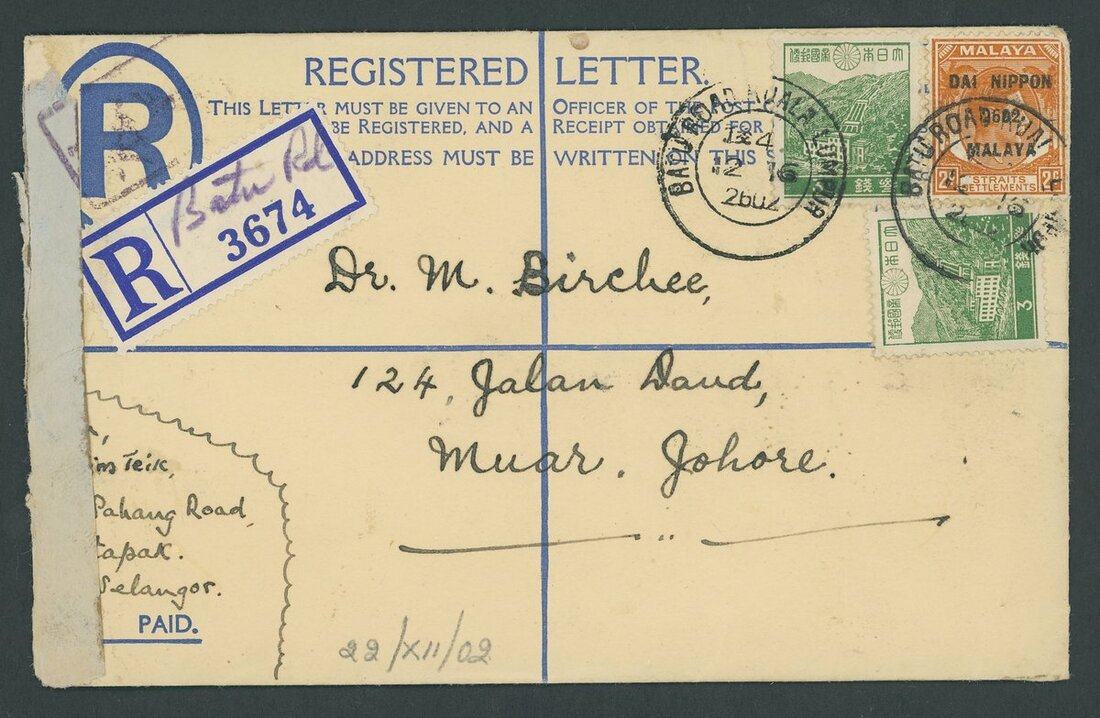 REGISTERED LETTER.
THIS LETTER MUST BE GIVEN TO AN OFFICER OF THE POST
BE REGISTERED, AND A RECEIPT OBTAINED FOR
ADDRESS MUST BE WRITTEN IN THIS S
R
R
Batu Rd
3674
BATU ROAD KUALA LUMPUR
4
12 16
2602
大日本帝國郵便
銭
MALAYA
DAI NIPPON
2602
MALAYA
2c
STRAITS
SETTLEMENTS
BATU ROAD KUAL
大日本帝國郵便
銭
3
Dr. M. Birchee,
124, Jalan Daud,
Muar. Johore.
Teik,
Pahang Road,
tapak.
Selangor.
PAID.
22/XII/02